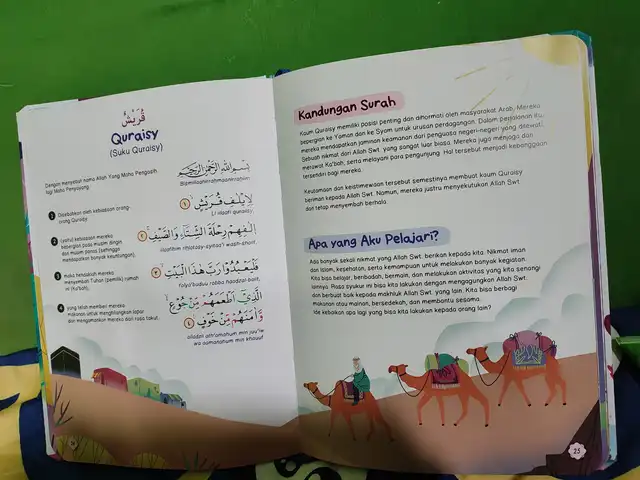 قُرَيْشٌ
Quraisy
(Suku Quraisy)
بِسْمِ اللّٰهِ الرَّحْمٰنِ الرَّحِيْمِ
Bismillaahirrahmaanirrahiim
Dengan menyebut nama Allah Yang Maha Pengasih
lagi Maha Penyayang.
لِاِيْلٰفِ قُرَيْشٍ ١
Li iilaafi quraisy
1 Disebabkan oleh kebiasaan orang-
orang Quraisy
اٖلٰفِهِمْ رِحْلَةَ الشِّتَاۤءِ وَالصَّيْفِ ٢
iilaafihim rihlatasy-syitaa'i wash-shaiif.
2 (yaitu) kebiasaan mereka
bepergian pada musim dingin
dan musim panas (sehingga
mendapatkan banyak keuntungan),
فَلْيَعْبُدُوْا رَبَّ هٰذَا الْبَيْتِ ٣
Falya'buduu rabba haadzal-baiit.
3 maka hendaklah mereka
menyembah Tuhan (pemilik) rumah
ini (Ka'bah),
الَّذِيْٓ اَطْعَمَهُمْ مِّنْ جُوْعٍ
وَّاٰمَنَهُمْ مِّنْ خَوْفٍ ٤
alladzii ath'amahum min juu'iw
wa aamanahum min khauuf
4 yang telah memberi mereka
makanan untuk menghilangkan lapar
dan mengamankan mereka dari rasa takut.
Kandungan Surah
Kaum Quraisy memiliki posisi penting dan dihormati oleh masyarakat Arab. Mereka
bepergian ke Yaman dan ke Syam untuk urusan perdagangan. Dalam perjalanan itu,
mereka mendapatkan jaminan keamanan dari penguasa negeri-negeri yang dilewati.
Sebuah nikmat dari Allah Swt. yang sangat luar biasa. Mereka juga menjaga dan
merawat Ka'bah, serta melayani para pengunjung. Hal tersebut menjadi kebanggaan
tersendiri bagi mereka.
Keutamaan dan keistimewaan tersebut semestinya membuat kaum Quraisy
beriman kepada Allah Swt. Namun, mereka justru menyekutukan Allah Swt.
dan tetap menyembah berhala.
Apa yang Aku Pelajari?
Ada banyak sekali nikmat yang Allah Swt. berikan kepada kita. Nikmat iman
dan Islam, kesehatan, serta kemampuan untuk melakukan banyak kegiatan.
Kita bisa belajar, beribadah, bermain, dan melakukan aktivitas yang kita senangi
lainnya. Rasa syukur ini bisa kita lakukan dengan mengagungkan Allah Swt.
dan berbuat baik kepada makhluk Allah Swt. yang lain. Kita bisa berbagi
makanan atau mainan, bersedekah, dan membantu sesama.
Ide kebaikan apa lagi yang bisa kita lakukan kepada orang lain?
25